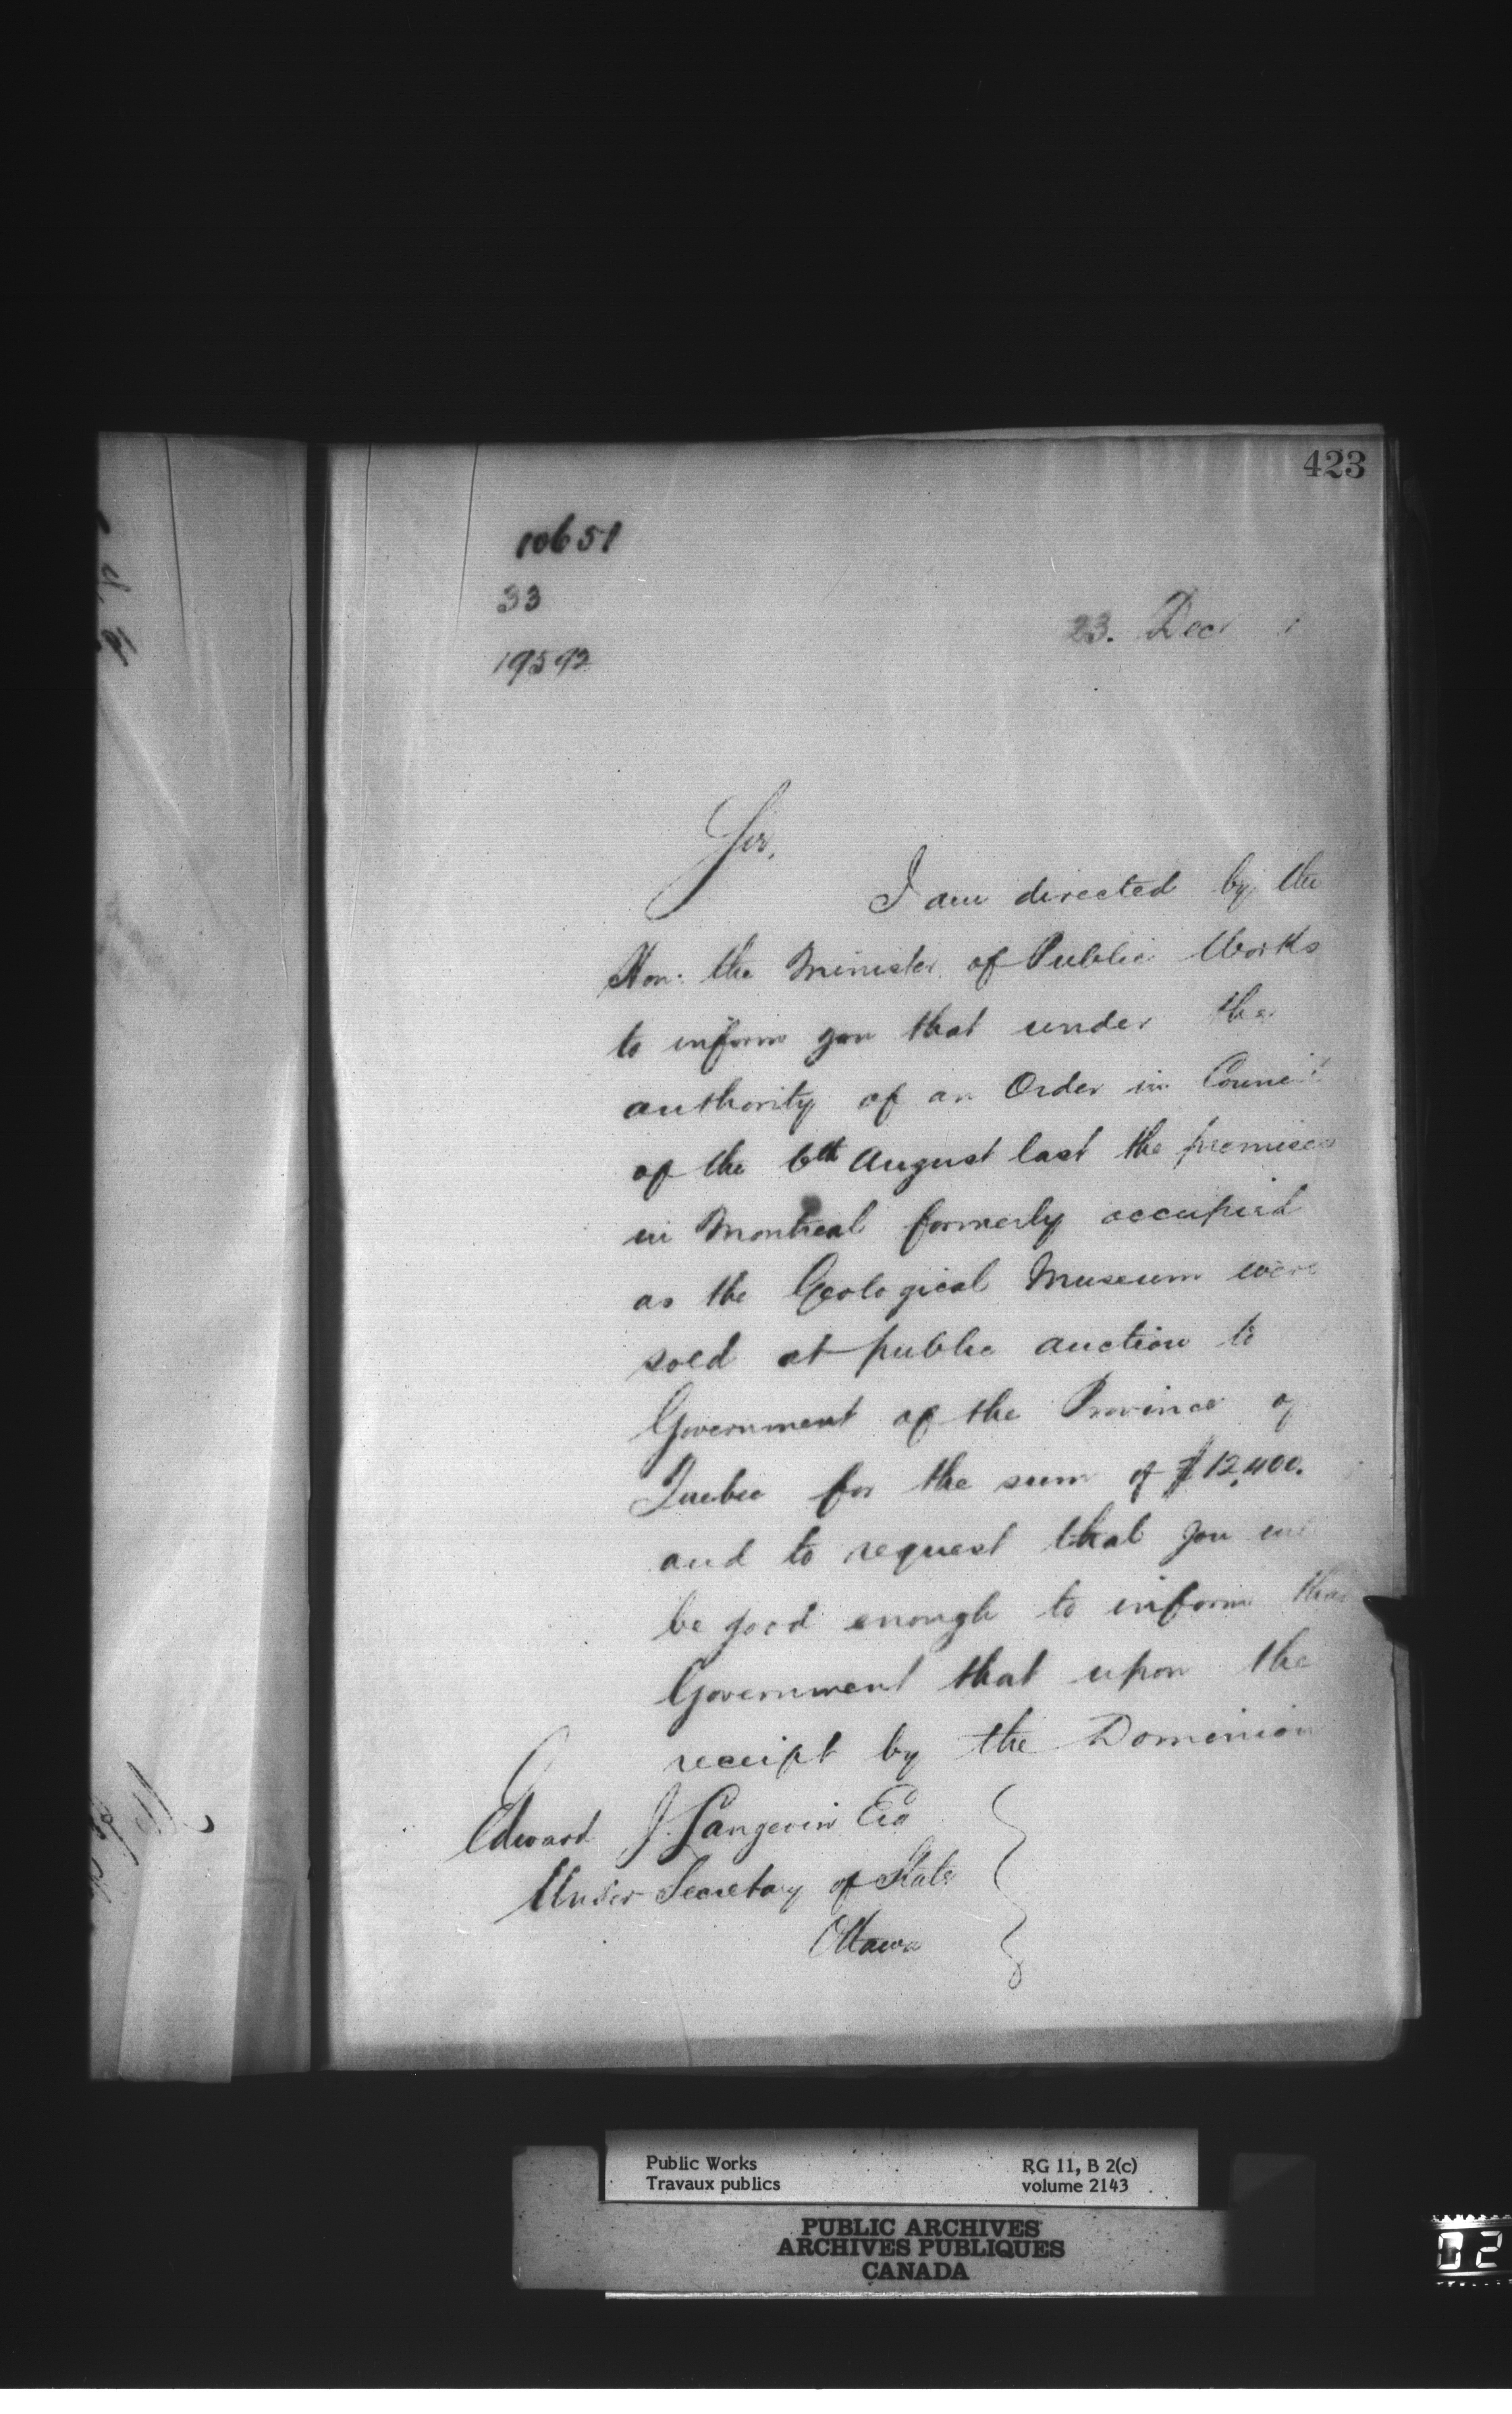 423
10651
33
19592
23. Decr
Sir,
I am directed by the
Hon: the Minister of Public Works
to inform you that under the
authority of an Order in Council
of the 6th August last the premises
in Montreal formerly occupied
as the Geological Museum were
sold at public auction to
Government of the Province of
Quebec for the sum of $12,400.
and to request that you
be good enough to inform that
Government that upon the
receipt by the Dominion
Edward J. Langevin Esq
Under Secretary of State
Ottawa
Public Works
Travaux publics
RG 11, B 2(c)
volume 2143
PUBLIC ARCHIVES
ARCHIVES PUBLIQUES
CANADA
02